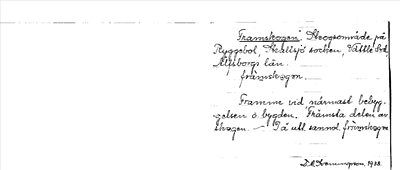 "Framskogen". Skogsområde på
Ryggebol, Skallsjö socken, Vättle hd,
Älvsborgs län.
främskogen.
Framme vid, närmast bebyg-
gelsen o. bygden. Främsta delen av
skogen. — På utt. sannol. främskogen
1938.